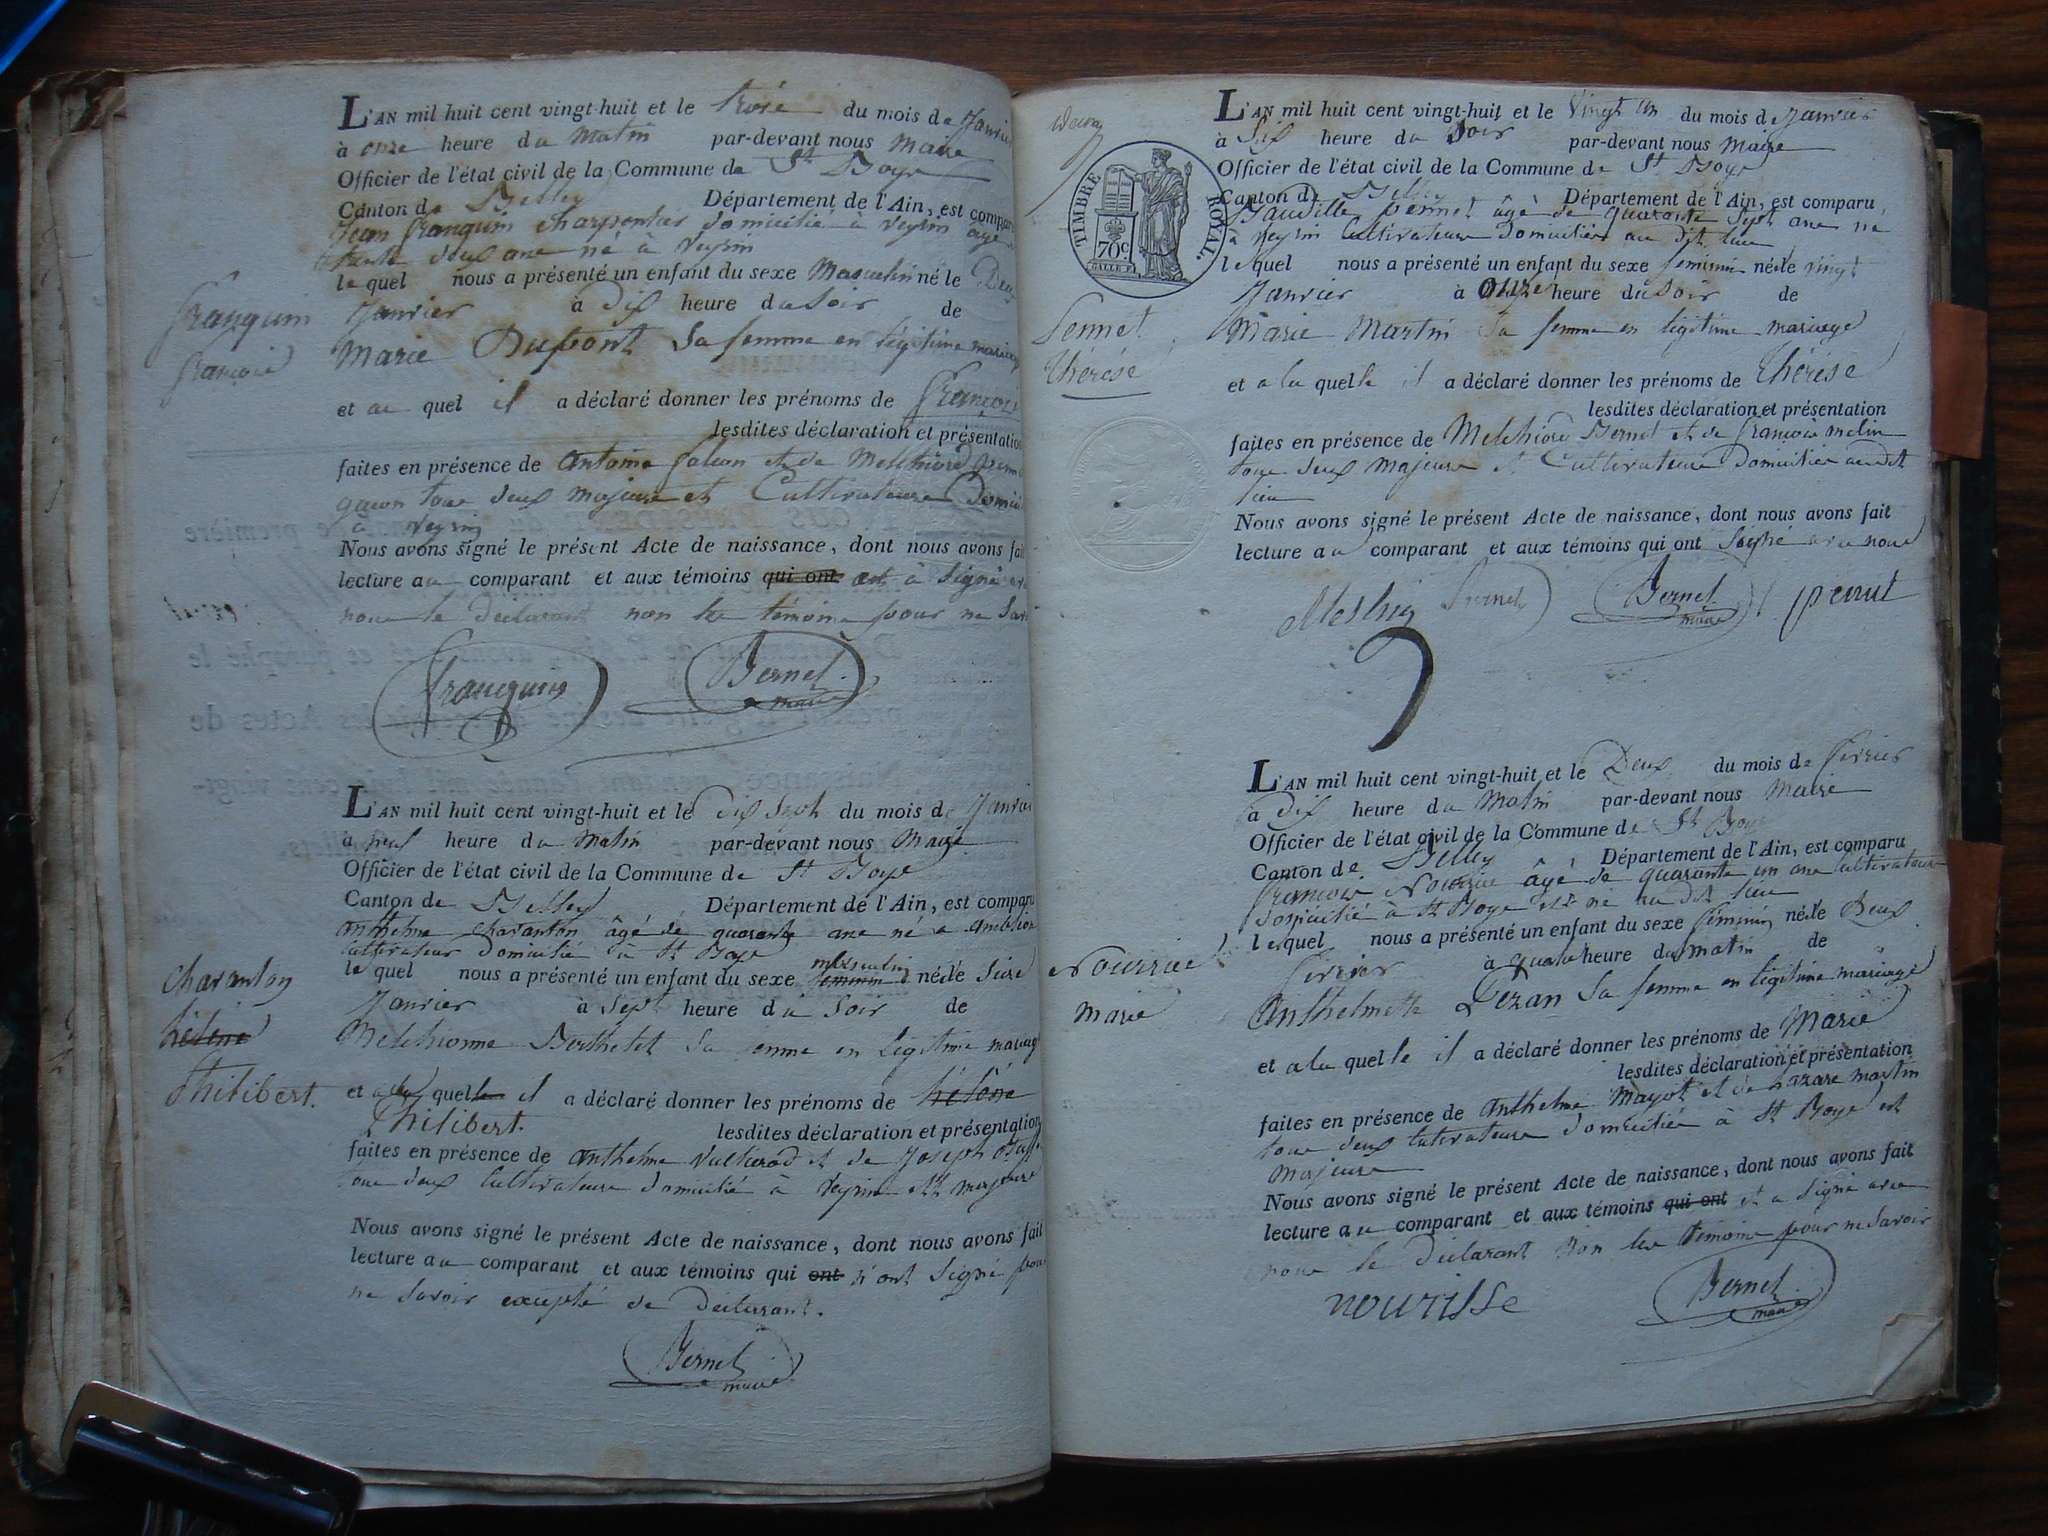 L'AN mil huit cent vingt-huit et le trois du mois de Janvier
à onze heure du Matin par-devant nous Maire
Officier de l'état civil de la Commune de St Boys
Canton de Belley Département de l'Ain, est comparu
Jean franquin charpentier domicilié à veyrin agé
trente deux ans né à veyrin
le quel nous a présenté un enfant du sexe Masculin né le Deux
franquin
Janvier à Dix heure du Soir de
françois
Marie Dupont Sa femme en légitime mariage
et au quel il a déclaré donner les prénoms de François
lesdites déclaration et présentation
faites en présence de antoine falcon et de Melchiord
tous deux majeurs et Cultivateurs Domicilié
à veyrin
Nous avons signé le présent Acte de naissance, dont nous avons fait
lecture au comparant et aux témoins qui ont et à signé avec
nous le Déclarant non les témoins pour ne Savoir
franquin
Bernel
maire
L'AN mil huit cent vingt-huit et le dix Sept du mois de Janvier
à neuf heure du Matin par-devant nous Maire
Officier de l'état civil de la Commune de St Boys
Canton de Belley Département de l'Ain, est comparu
anthelme charanton âgé de quarante ans né a
cultivateur domicilié à St Boys
le quel nous a présenté un enfant du sexe féminin masculin né le Sieze
Charanton
Janvier à Sept heure du Soir de
hélène
Melchionne Berthelet Sa femme en légitime mariage
Philibert.
et a quel il a déclaré donner les prénoms de hélène
Philibert.
lesdites déclaration et présentation
faites en présence de anthelme et de Joseph
tous deux Cultivateurs domicilié à veyrin et majeurs
Nous avons signé le présent Acte de naissance, dont nous avons fait
lecture au comparant et aux témoins qui ont n'ont Signé pour
ne Savoir excepté le Déclarant.
Bernel
maire
TIMBRE ROYAL.
70 c
L'AN mil huit cent vingt-huit et le Vingt un du mois de Janvier
à Six heure du Soir par-devant nous Maire
Officier de l'état civil de la Commune de St Boys
Canton de Belley Département de l'Ain, est comparu
Baudille pennet âgé de quarante Sept ans né
à veyrin Cultivateur domicilié au dit lieu
le quel nous a présenté un enfant du sexe feminin née le vingt
Janvier à onze heure du Soir de
Pennet
Marie Martin Sa femme en légitime mariage
Thérèse
et a la quelle il a déclaré donner les prénoms de Thérèse
lesdites déclaration et présentation
faites en présence de Melchiord Bernel et de françois melin
tous deux majeurs et Cultivateurs Domicilié audit
lieu
Nous avons signé le présent Acte de naissance, dont nous avons fait
lecture au comparant et aux témoins qui ont Signé avec nous
Bernel
maire
L'AN mil huit cent vingt-huit et le Deux du mois de fevrier
à Dix heure du Matin par-devant nous Maire
Officier de l'état civil de la Commune de St Boys
Canton de Belley Département de l'Ain, est comparu
francois Nourrice âgé de quarante un ans Cultivateur
domicilié à St Boys et né au dit lieu
le quel nous a présenté un enfant du sexe féminin née le Deux
Nourrice
fevrier à quatre heure du matin de
marie
Anthelmette Dezan Sa femme en légitime mariage
et a la quelle il a déclaré donner les prénoms de Marie
lesdites déclaration et présentation
faites en présence de anthelme Mayot et de nazare martin
tous deux Cultivateurs domicilié à St Boys et
majeurs
Nous avons signé le présent Acte de naissance, dont nous avons fait
lecture au comparant et aux témoins qui ont et a Signé avec
nous le déclarant non les témoins pour ne Savoir
nourisse
Bernel
maire